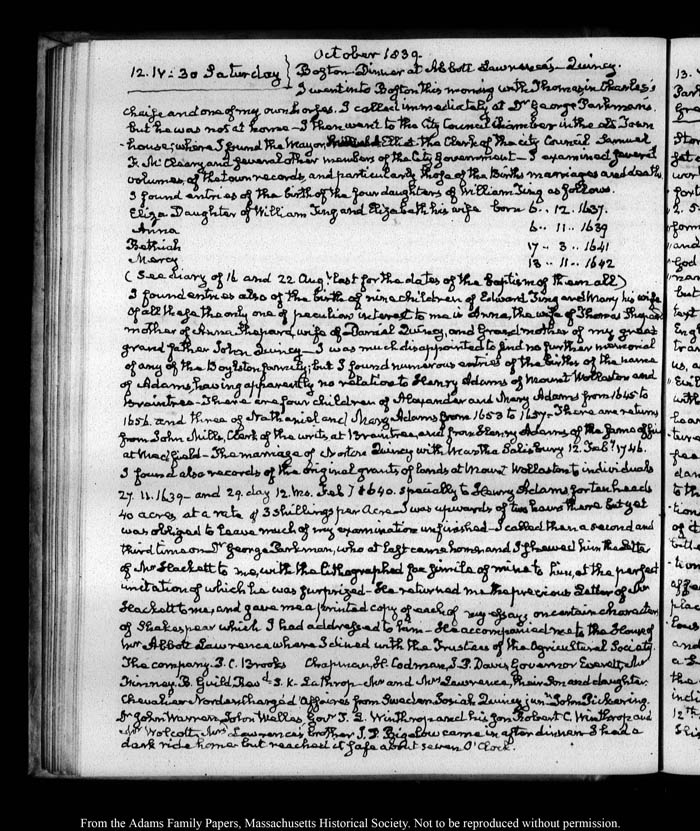 October 1839.
12. IV:30 Saturday } Boston. Dinner at Abbott Lawrence's— Quincy.
I went into Boston this morning with Thomas in Charles's
chaise and one of my own horses. I called immediately at Dr. George Parkman's.
but he was not at home—I then went to the City Council Chamber in the old Town
-house; where I found the Mayor, Eliot the Clerk of the city Council Samuel
F. McCleary and several other members of the City Government— I examined several
volumes, of the town records, and particularly those of the Births marriages and deaths
I found entries of the birth of the four daughters of William Ting as follows.
Eliza Daughter of William Ting and Elizabeth his wife born 6.. 12. 1637.
Anna 6.. 11.. 1639
Bethiah 17.. 3.. 1641
Mercy 13.. 11.. 1642
(See diary of 16 and 22 Augt. last for the dates of the baptism of them all)
I found entries also of the birth of nine children of Edward Ting and Mary his wife
of all these the only one of peculiar interest to me is Anna, the wife of Thomas Shepard
mother of Anna Shepard, wife of Daniel Quincy, and Grandmother of my great
grandfather John Quincy—I was much disappointed to find no further memorial
of any of the Boylston family; but I found numerous entries of the births of the name
of Adams, having apparently no relation to Henry Adams of Mount Wollaston and
Braintree—There are four children of Alexander and Mary Adams from 1645 to
1656. and three of Nathaniel and Mary Adams from 1653 to 1657. There are returns
from John Mills, Clerk of the writs at Braintree, and from Henry Adams of the same office
at Medfield—The marriage of Norton Quincy with Martha Salisbury 12. Feby. 1746.
I found also records of the original grants of lands at Mount Wollaston to individuals
27. 11. 1639— and 29. day 12. mo. Feb 1640. specially to Henry Adams for ten heads
40 acres, at a rate of 3 shillings per Acre—I was upwards of two hours there but yet
was obliged to leave much of my examination unfinished—I called then a second and
third time on Dr. George Parkman, who at last came home and I shewed him the Letter
of Mr Hackett to me, with the lithographed fac simile of mine to him, at the perfect
imitation of which he was surprized—He returned me the precious Letter of Mr
Hackett to me, and gave me a printed copy of each of my essays on certain characters
of Shakespear which I had addressed to him—He accompanied me to the House of
Mr. Abbott Lawrence where I dined with the Trustees of the Agricultural Society.
The company. P. C. Brooks Chapman, H. Codman, J. P. Davis Governor Everett, Mr
Phinney. B. Guild, Revd. S. K. Lothrop—Mr and Mrs Lawrence, their Son and daughter.
Chevalier Norderling Chargé d'Affaires from Sweden Josiah Quincy junr. John Pickering.
Dr John Warren, John Welles, Govr. T. L. Winthrop and his son Robert C. Winthrop and
Mr Wolcott, Mrs Lawrence's brother J. P. Bigelow came in after dinner I had a
dark ride home but reached it safe about seven O'Clock.
From the Adams Family Papers, Massachusetts Historical Society. Not to be reproduced without permission.